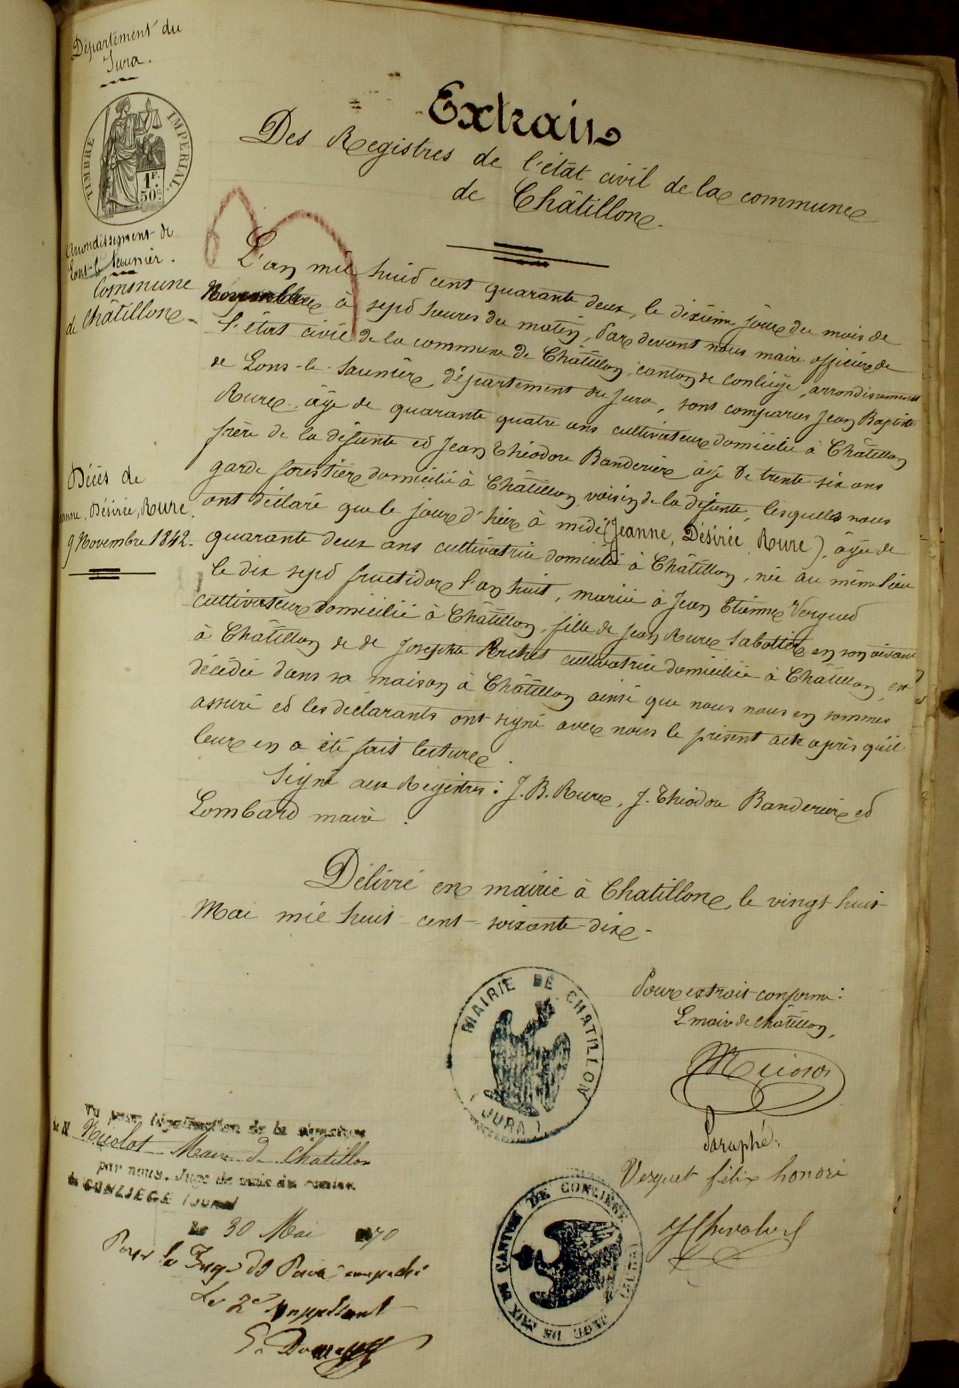 Département du
Jura.
TIMBRE IMPERIAL.
1F.
50c
Arrondissement de
Lons-le-Saunier.
Commune
de Châtillon
Extrait
Des Registres de l'état civil de la commune
de Châtillon.
L'an mil huit cent quarante deux, le dixième jour du mois de
Novembre à sept heures du matin, Par devant nous maire officier de
l'état civil de la commune de Châtillon, canton de Conliège, arrondissement
de Lons-le-Saunier, département du Jura, sont comparus Jean Baptiste
Rure, âgé de quarante quatre ans cultivateur domicilié à Châtillon
frère de la défunte et Jean Théodore Banderier âgé de trente six ans
garde forestier domicilié à Châtillon voisin de la défunte, lesquels nous
ont déclaré que le jour d'hier à midi (Jeanne, Désirée, Rure), âgée de
quarante deux ans cultivatrice domiciliée à Châtillon, née au même lieu
le dix sept fructidor l'an huit, mariée à Jean Etienne Vergued
cultivateur domicilié à Châtillon, fille de Jean Rure Sabotier en son vivant
à Châtillon et de Josephte cultivatrice domiciliée à Châtillon, est
décédée dans sa maison à Châtillon ainsi que nous nous en sommes
assuré et les déclarants ont signé avec nous le présent acte après qu'il
leur en a été fait lecture.
Signé aux Registres: J. B. Rure, J. Théodore Banderier et
Lombard maire.
Décès de
Jeanne, Désirée, Rure.
9 Novembre 1842.
Délivré en mairie à Chatillon, le vingt huit
Mai mil huit-cent-soixante-dix.
Pour extrait conforme:
L maire de Châtillon,
MAIRIE DE CHATILLON
(JURA)
Paraphé.
Verguet félix honoré
Vu pour légalisation de la signature
de M Maire de Chatillon
par nous, Juge de paix du canton
de CONLIEGE (Jura)
Le 30 Mai 1870
Pour le Juge de Paix empeché
Le 2e suppléant
JUGE DE PAIX DU CANTON DE CONLIEGE (JURA)